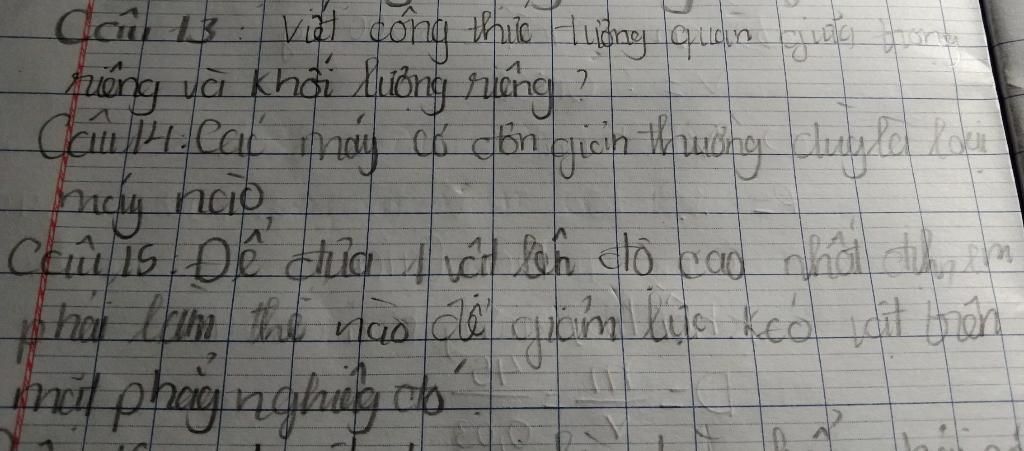 Câu 13: Viết công thức tương quan giữa trọng
riêng và khối lượng riêng?
Câu 14: Các máy cơ đơn giản thường dùng là loại
máy nào
Câu 15 Để đưa 1 vật lên độ cao nhất định em
phải làm thế nào để giảm lực kéo vật trên
mặt phẳng nghiêng đó